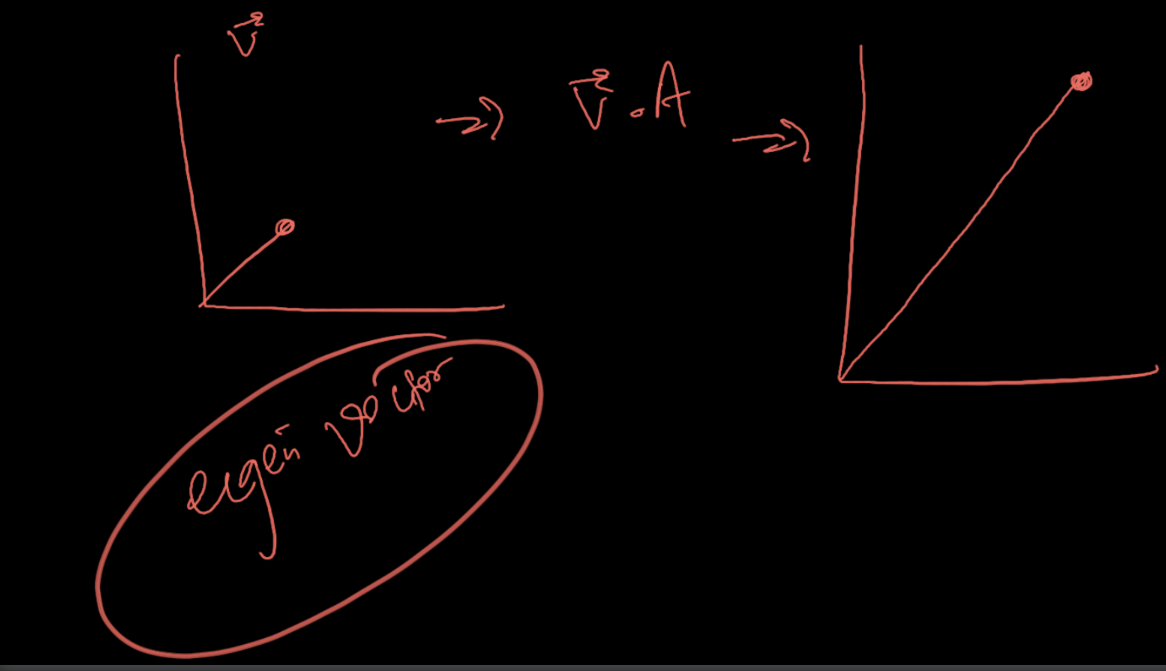 v⃗
→ v⃗ . A →
eigen vector